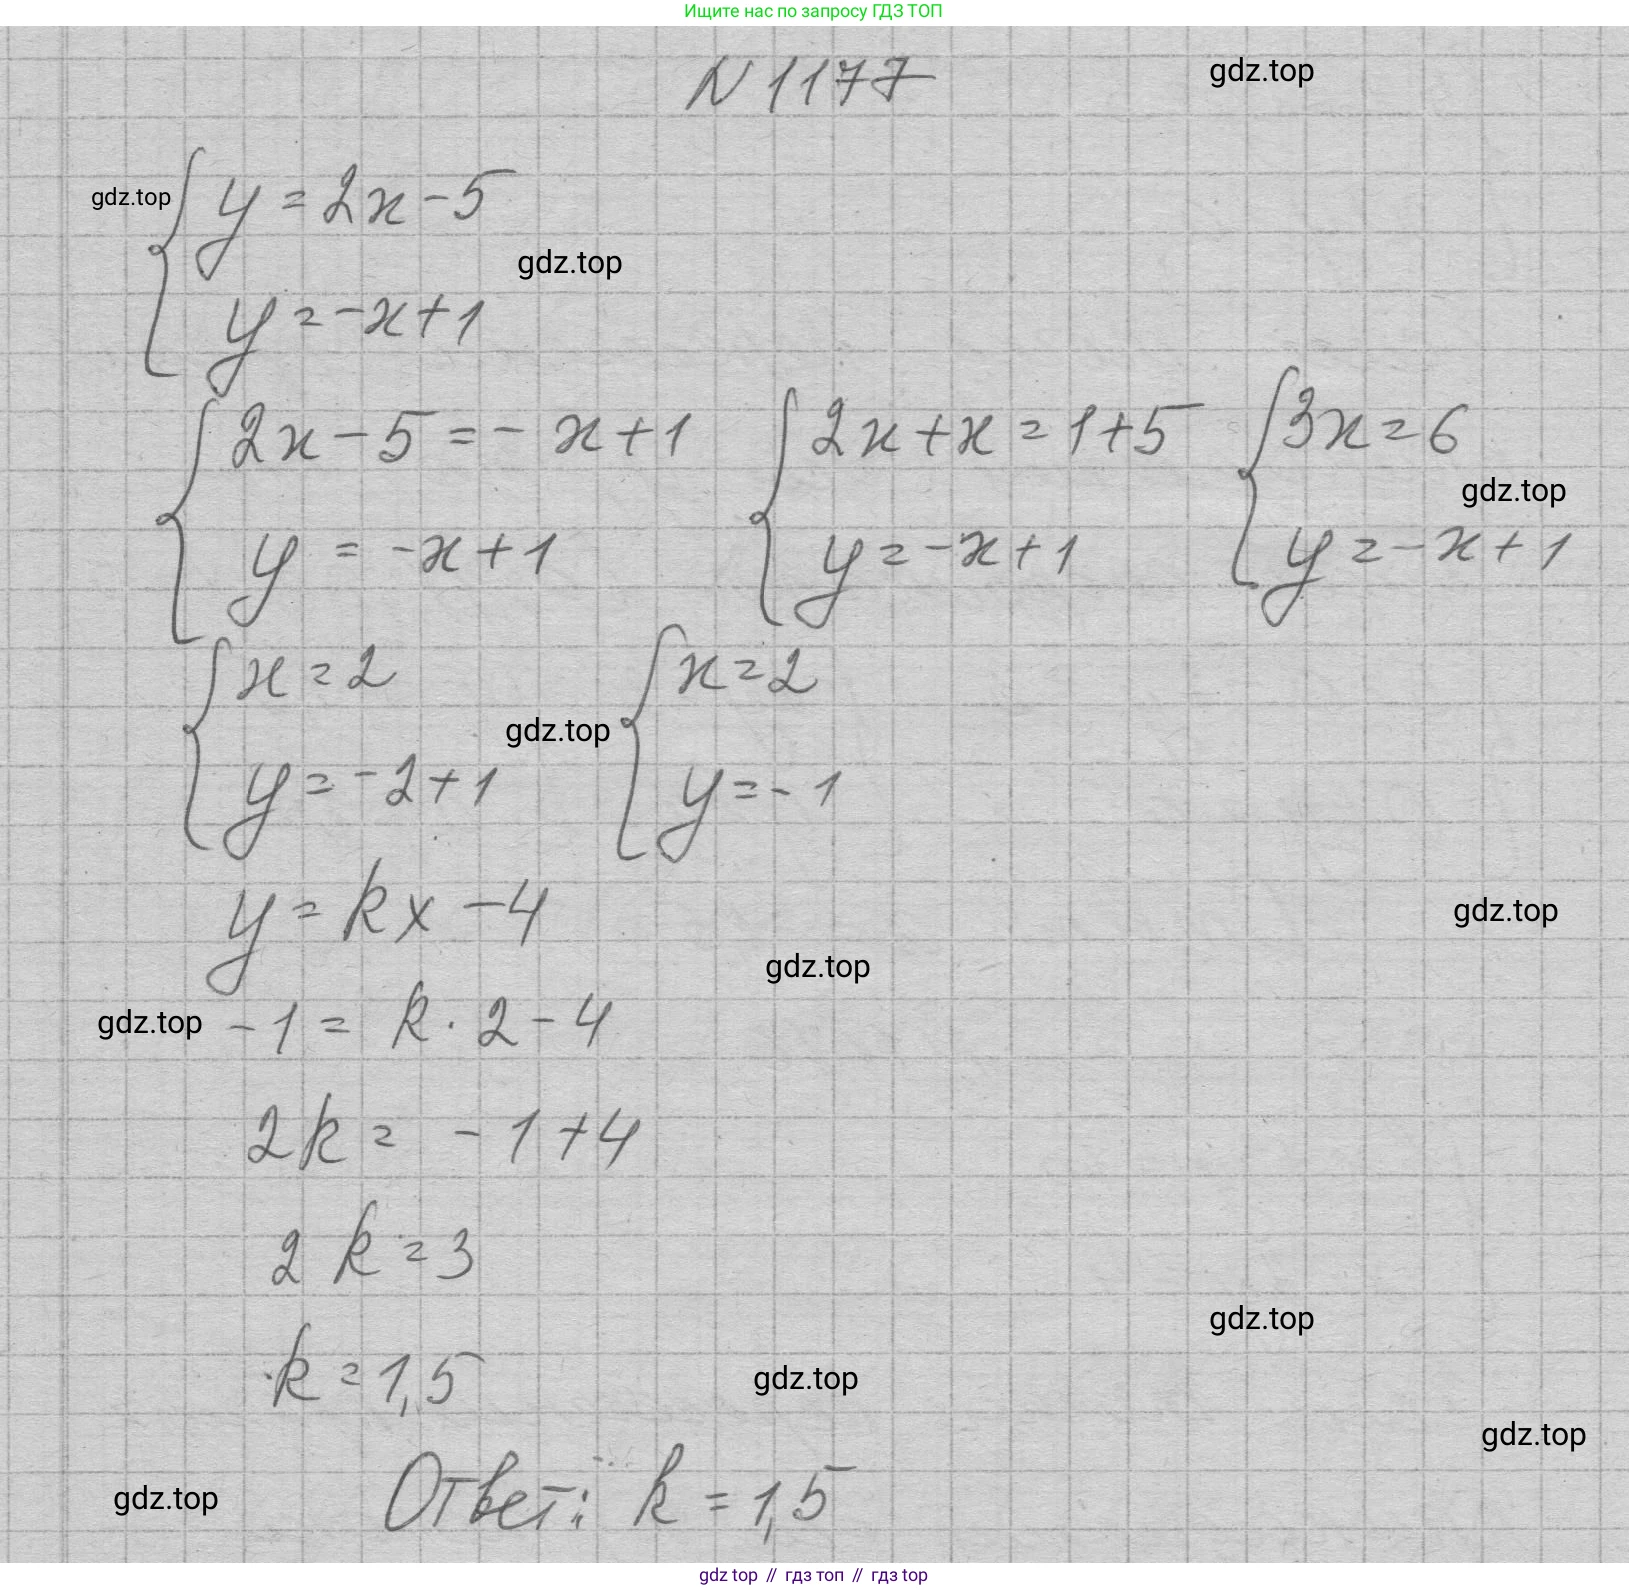 Ищите нас по запросу ГДЗ ТОП
N 1177
gdz.top
gdz.top
y = 2x - 5
gdz.top
y = -x + 1
2x - 5 = - x + 1
2x + x = 1 + 5
3x = 6
gdz.top
y = -x + 1
y = -x + 1
y = -x + 1
x = 2
x = 2
gdz.top
y = -2 + 1
y = -1
y = kx - 4
gdz.top
gdz.top
gdz.top
-1 = k · 2 - 4
2k = -1 + 4
2k = 3
gdz.top
k = 1,5
gdz.top
gdz.top
gdz.top
Ответ: k = 1,5
gdz top // гдз топ // гдз top